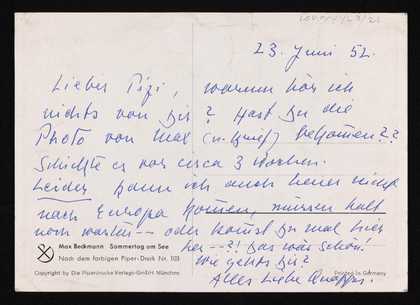 23. Juni 52.
Lieber Pizi, warum hör ich
nichts von Dir? Hast Du die
Photo von Max (u. Brief) bekommen??
Schickte es vor circa 3 Wochen.
Leider kann ich auch heuer nicht
nach Europa kommen, müssen halt
noch warten -- oder kommst Du mal hier
her --?! Das wär schön!
Wie gehts Dir?
Alles Liebe
Max Beckmann Sommertag am See
Nach dem farbigen Piper-Druck Nr. 103
Copyright by Die Piperdrucke Verlags-GmbH. München
Printed in Germany